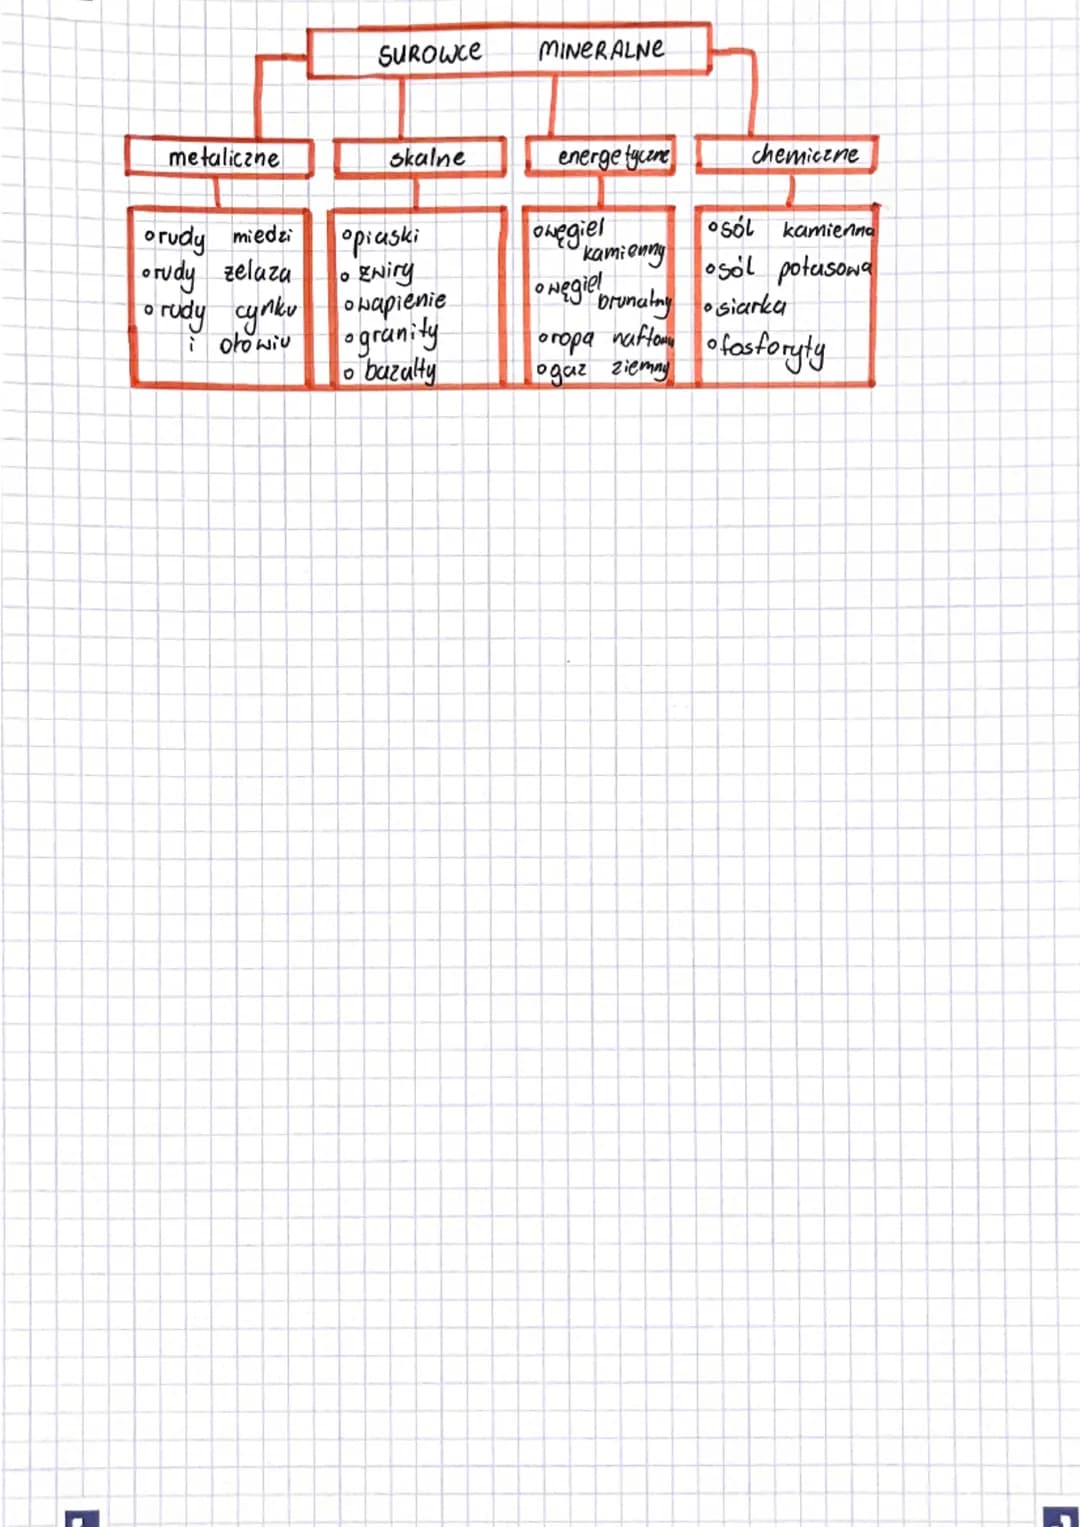 SUROWCE MINERALNE
metaliczne
skalne
energetyczne
chemiczne
o rudy miedzi
o rudy żelaza
o rudy cynku
i ołowiu
o piaski
o żwiry
o wapienie
o granity
o bazalty
o węgiel
kamienny
o węgiel
brunatny
o ropa naftowa
o gaz ziemny
o sól kamienna
o sól potasowa
o siarka
o fosforyty